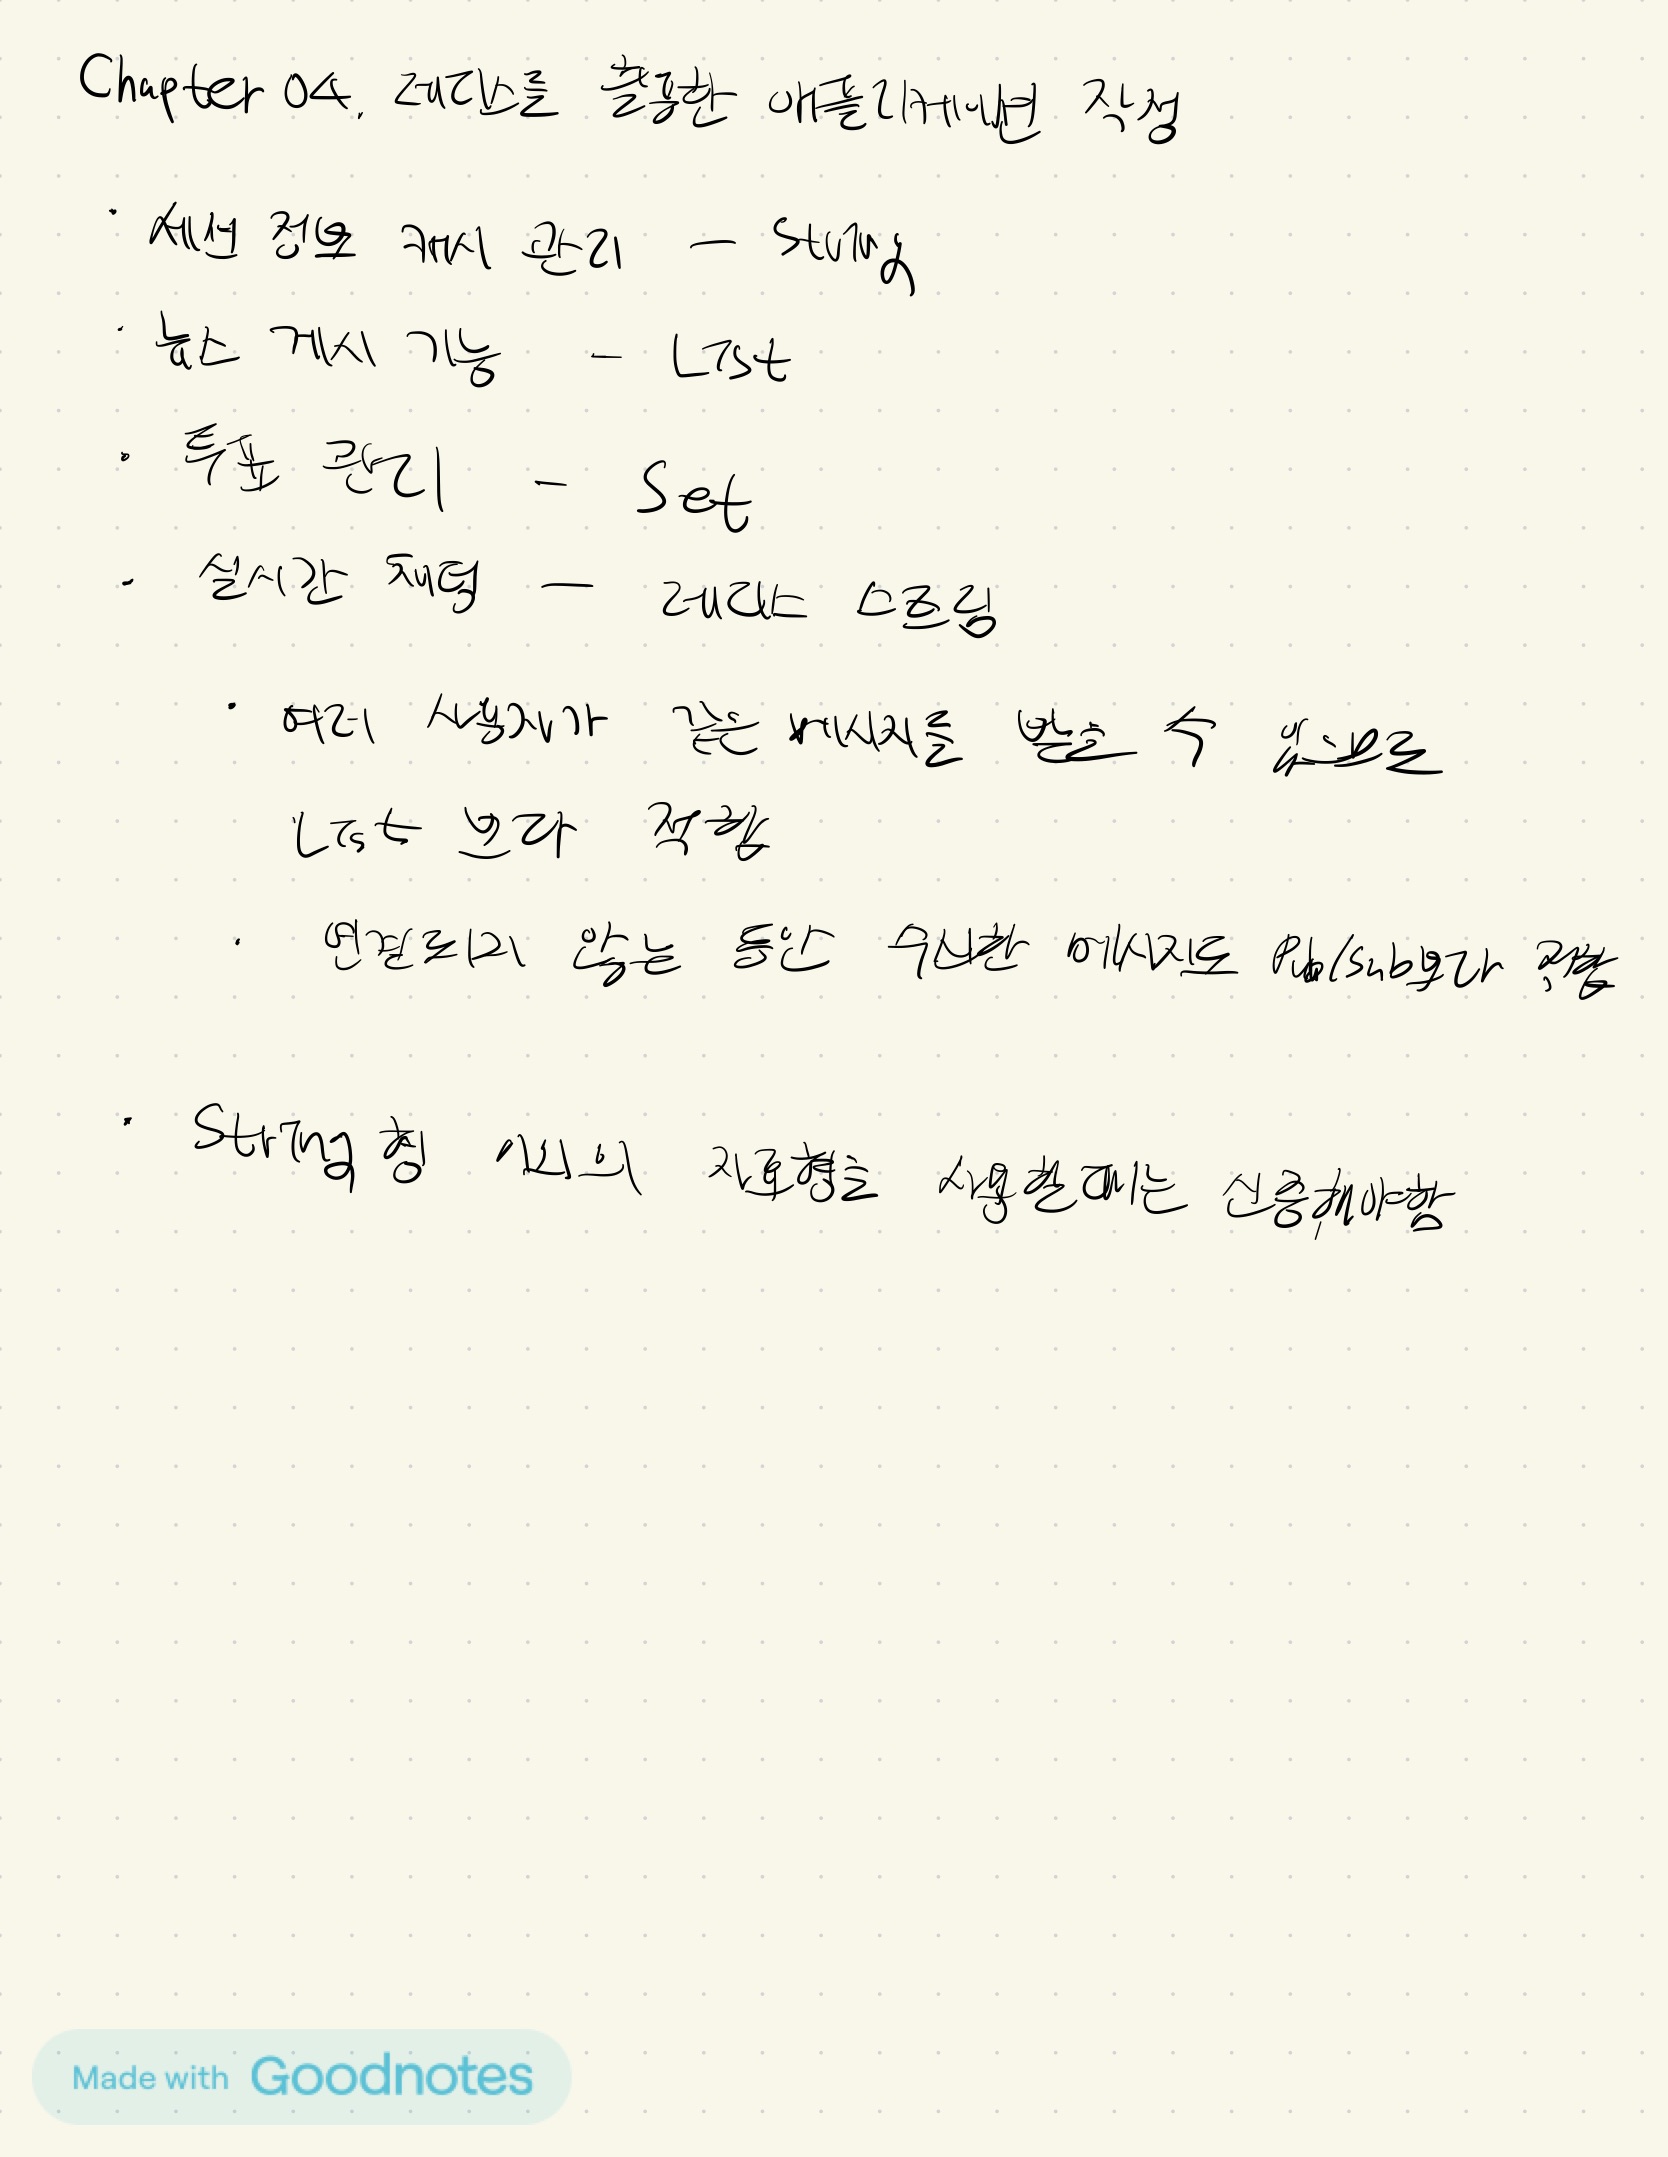 Chapter 04. 레디스를 활용한 애플리케이션 작성
· 세션 정보 캐시 관리 — String
· 뉴스 게시 기능 - List
· 투표 관리 - Set
· 실시간 채팅 — 레디스 스트림
· 여러 사용자가 같은 메시지를 받을 수 있으므로
List 보다 적합
· 연결되지 않는 동안 수신한 메시지도 Pub/Sub보다 적합
· String형 이외의 자료형을 사용할때는 신중해야함
Made with Goodnotes